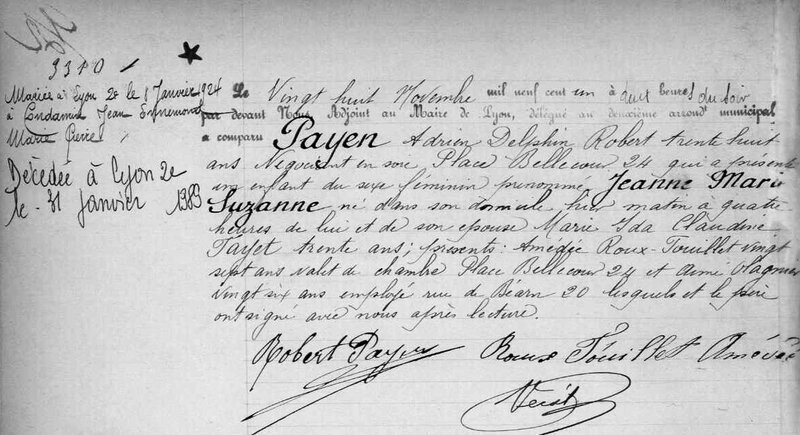 3310
Mariée à Lyon 2e le 8 Janvier 1924
à Condamin Jean Ennemond
Marie Pierre
Décédée à Lyon 2e
le 31 janvier 1983
Le Vingt huit Novembre mil neuf cent un à deux heures du soir
par devant Nous Adjoint au Maire de Lyon, délégué au deuxième arrondt municipal
a comparu Payen Adrien Delphin Robert trente huit
ans Négociant en soie Place Bellecour 24 qui a présenté
un enfant du sexe féminin prénommé Jeanne Marie
Suzanne né dans son domicile hier matin à quatre
heures de lui et de son épouse Marie Ida Claudine
Payet trente ans; présents: Amédée Roux-Fouillet vingt
sept ans valet de chambre Place Bellecour 24 et Aimé
vingt six ans employé rue de Béarn 20 lesquels et le père
ont signé avec nous après lecture.
Robert Payen Roux Fouillet Amédée